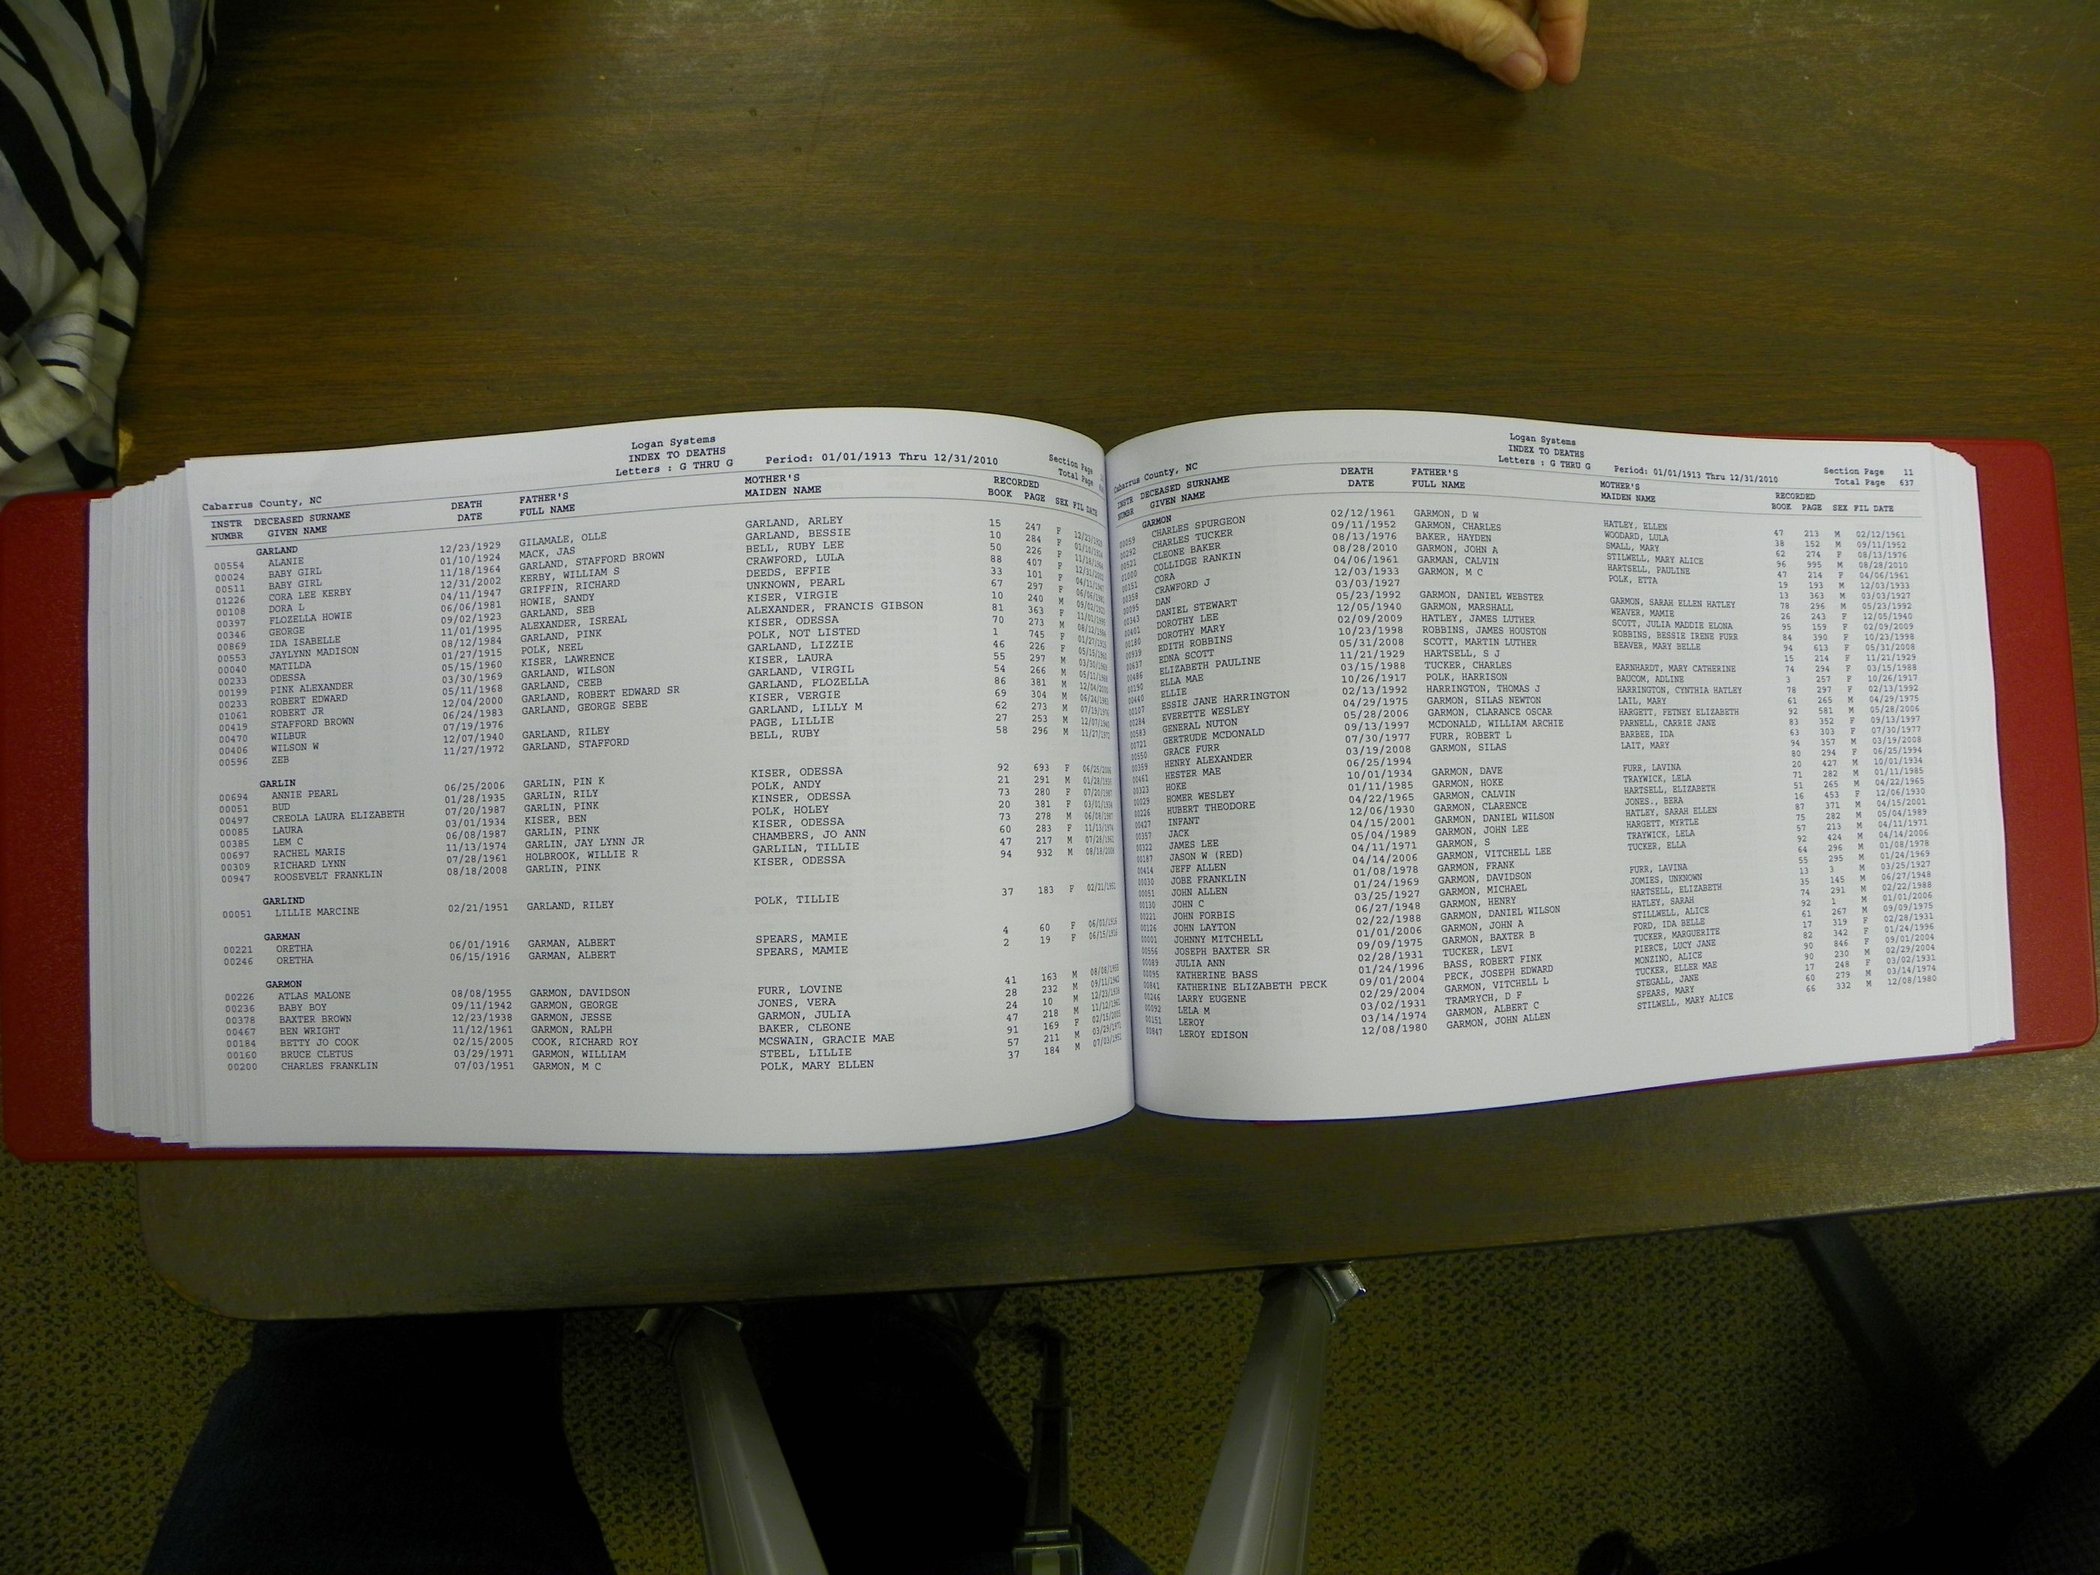 Logan Systems
INDEX TO DEATHS
Letters : G THRU G Period: 01/01/1913 Thru 12/31/2010
Section Page
Total Page
Cabarrus County, NC
INSTR DECEASED SURNAME DEATH FATHER'S MOTHER'S RECORDED
NUMBR GIVEN NAME DATE FULL NAME MAIDEN NAME BOOK PAGE SEX FIL DATE
GARLAND
00554 ALANIE 12/23/1929 GILAMALE, OLLE GARLAND, ARLEY 15 247 F 12/23/1929
00024 BABY GIRL 01/10/1924 MACK, JAS GARLAND, BESSIE 10 284 F 01/10/1924
00511 BABY GIRL 11/18/1964 GARLAND, STAFFORD BROWN BELL, RUBY LEE 50 226 F 11/18/1964
01226 CORA LEE KERBY 12/31/2002 KERBY, WILLIAM S CRAWFORD, LULA 88 407 F 12/31/2002
00108 DORA L 04/11/1947 GRIFFIN, RICHARD DEEDS, EFFIE 33 101 F 04/11/1947
00397 FLOZELLA HOWIE 06/06/1981 HOWIE, SANDY UNKNOWN, PEARL 67 297 F 06/06/1981
00346 GEORGE 09/02/1923 GARLAND, SEB KISER, VIRGIE 10 240 M 09/02/1923
00869 IDA ISABELLE 11/01/1995 ALEXANDER, ISREAL ALEXANDER, FRANCIS GIBSON 81 363 F 11/01/1995
00553 JAYLYNN MADISON 08/12/1984 GARLAND, PINK KISER, ODESSA 70 273 M 08/12/1984
00040 MATILDA 01/27/1915 POLK, NEEL POLK, NOT LISTED 1 745 F 01/27/1915
00233 ODESSA 05/15/1960 KISER, LAWRENCE GARLAND, LIZZIE 46 226 F 05/15/1960
00199 PINK ALEXANDER 03/30/1969 GARLAND, WILSON KISER, LAURA 55 297 M 03/30/1969
00233 ROBERT EDWARD 05/11/1968 GARLAND, CEEB GARLAND, VIRGIL 54 266 M 05/11/1968
01061 ROBERT JR 12/04/2000 GARLAND, ROBERT EDWARD SR GARLAND, FLOZELLA 86 381 M 12/04/2000
00419 STAFFORD BROWN 06/24/1983 GARLAND, GEORGE SEBE KISER, VERGIE 69 304 M 06/24/1983
00470 WILBUR 07/19/1976 GARLAND, LILLY M 62 273 M 07/19/1976
00406 WILSON W 12/07/1940 GARLAND, RILEY PAGE, LILLIE 27 253 M 12/07/1940
00596 ZEB 11/27/1972 GARLAND, STAFFORD BELL, RUBY 58 296 M 11/27/1972
GARLIN
00694 ANNIE PEARL 06/25/2006 GARLIN, PIN K KISER, ODESSA 92 693 F 06/25/2006
00051 BUD 01/28/1935 GARLIN, RILY POLK, ANDY 21 291 M 01/28/1935
00497 CREOLA LAURA ELIZABETH 07/20/1987 GARLIN, PINK KINSER, ODESSA 73 280 F 07/20/1987
00085 LAURA 03/01/1934 KISER, BEN POLK, HOLEY 20 381 F 03/01/1934
00385 LEM C 06/08/1987 GARLIN, PINK KISER, ODESSA 73 278 M 06/08/1987
00697 RACHEL MARIS 11/13/1974 GARLIN, JAY LYNN JR CHAMBERS, JO ANN 60 283 F 11/13/1974
00309 RICHARD LYNN 07/28/1961 HOLBROOK, WILLIE R GARLILN, TILLIE 47 217 M 07/28/1961
00947 ROOSEVELT FRANKLIN 08/18/2008 GARLIN, PINK KISER, ODESSA 94 932 M 08/18/2008
GARLIND
00051 LILLIE MARCINE 02/21/1951 GARLAND, RILEY POLK, TILLIE 37 183 F 02/21/1951
GARMAN
00221 ORETHA 06/01/1916 GARMAN, ALBERT SPEARS, MAMIE 4 60 F 06/01/1916
00246 ORETHA 06/15/1916 GARMAN, ALBERT SPEARS, MAMIE 2 19 F 06/15/1916
GARMON
00226 ATLAS MALONE 08/08/1955 GARMON, DAVIDSON FURR, LOVINE 41 163 M 08/08/1955
00236 BABY BOY 09/11/1942 GARMON, GEORGE JONES, VERA 28 232 M 09/11/1942
00378 BAXTER BROWN 12/23/1938 GARMON, JESSE GARMON, JULIA 24 10 M 12/23/1938
00467 BEN WRIGHT 11/12/1961 GARMON, RALPH BAKER, CLEONE 47 218 M 11/12/1961
00184 BETTY JO COOK 02/15/2005 COOK, RICHARD ROY MCSWAIN, GRACIE MAE 91 169 F 02/15/2005
00160 BRUCE CLETUS 03/29/1971 GARMON, WILLIAM STEEL, LILLIE 57 211 M 03/29/1971
00200 CHARLES FRANKLIN 07/03/1951 GARMON, M C POLK, MARY ELLEN 37 184 M 07/03/1951
Logan Systems
INDEX TO DEATHS
Letters : G THRU G Period: 01/01/1913 Thru 12/31/2010
Section Page 11
Total Page 637
Cabarrus County, NC
INSTR DECEASED SURNAME DEATH FATHER'S MOTHER'S RECORDED
NUMBR GIVEN NAME DATE FULL NAME MAIDEN NAME BOOK PAGE SEX FIL DATE
GARMON
00059 CHARLES SPURGEON 02/12/1961 GARMON, D W HATLEY, ELLEN 47 213 M 02/12/1961
00292 CHARLES TUCKER 09/11/1952 GARMON, CHARLES WOODARD, LULA 38 152 M 09/11/1952
00521 CLEONE BAKER 08/13/1976 BAKER, HAYDEN SMALL, MARY 62 274 F 08/13/1976
01000 COLLIDGE RANKIN 08/28/2010 GARMON, JOHN A STILWELL, MARY ALICE 96 995 M 08/28/2010
00151 CORA 04/06/1961 GARMAN, CALVIN HARTSELL, PAULINE 47 214 F 04/06/1961
00358 CRAWFORD J 12/03/1933 GARMON, M C POLK, ETTA 19 193 M 12/03/1933
00095 DAN 03/03/1927 13 363 M 03/03/1927
00343 DANIEL STEWART 05/23/1992 GARMON, DANIEL WEBSTER GARMON, SARAH ELLEN HATLEY 78 296 M 05/23/1992
00401 DOROTHY LEE 12/05/1940 GARMON, MARSHALL WEAVER, MAMIE 26 243 F 12/05/1940
00180 DOROTHY MARY 02/09/2009 HATLEY, JAMES LUTHER SCOTT, JULIA MADDIE ELONA 95 159 F 02/09/2009
00939 EDITH ROBBINS 10/23/1998 ROBBINS, JAMES HOUSTON ROBBINS, BESSIE IRENE FURR 84 390 F 10/23/1998
00637 EDNA SCOTT 05/31/2008 SCOTT, MARTIN LUTHER BEAVER, MARY BELLE 94 613 F 05/31/2008
00486 ELIZABETH PAULINE 11/21/1929 HARTSELL, S J 15 214 F 11/21/1929
00190 ELLA MAE 03/15/1988 TUCKER, CHARLES EARNHARDT, MARY CATHERINE 74 294 F 03/15/1988
00440 ELLIE 10/26/1917 POLK, HARRISON BAUCOM, ADLINE 3 257 F 10/26/1917
00107 ESSIE JANE HARRINGTON 02/13/1992 HARRINGTON, THOMAS J HARRINGTON, CYNTHIA HATLEY 78 297 F 02/13/1992
00284 EVERETTE WESLEY 04/29/1975 GARMON, SILAS NEWTON LAIL, MARY 61 265 M 04/29/1975
00583 GENERAL NUTON 05/28/2006 GARMON, CLARANCE OSCAR HARGETT, FETNEY ELIZABETH 92 581 M 05/28/2006
00721 GERTRUDE MCDONALD 09/13/1997 MCDONALD, WILLIAM ARCHIE PARNELL, CARRIE JANE 83 352 F 09/13/1997
00550 GRACE FURR 07/30/1977 FURR, ROBERT L BARBEE, IDA 63 303 F 07/30/1977
00359 HENRY ALEXANDER 03/19/2008 GARMON, SILAS LAIT, MARY 94 357 M 03/19/2008
00461 HESTER MAE 06/25/1994 80 294 F 06/25/1994
00323 HOKE 10/01/1934 GARMON, DAVE FURR, LAVINA 20 427 M 10/01/1934
00029 HOMER WESLEY 01/11/1985 GARMON, HOKE TRAYWICK, LELA 71 282 M 01/11/1985
00226 HUBERT THEODORE 04/22/1965 GARMON, CALVIN HARTSELL, ELIZABETH 51 265 M 04/22/1965
00427 INFANT 12/06/1930 GARMON, CLARENCE JONES., BERA 16 453 F 12/06/1930
00357 JACK 04/15/2001 GARMON, DANIEL WILSON HATLEY, SARAH ELLEN 87 371 M 04/15/2001
00322 JAMES LEE 05/04/1989 GARMON, JOHN LEE HARGETT, MYRTLE 75 282 M 05/04/1989
00187 JASON W (RED) 04/11/1971 GARMON, S TRAYWICK, LELA 57 213 M 04/11/1971
00414 JEFF ALLEN 04/14/2006 GARMON, VITCHELL LEE TUCKER, ELLA 92 424 M 04/14/2006
00030 JOBE FRANKLIN 01/08/1978 GARMON, FRANK 64 296 M 01/08/1978
00051 JOHN ALLEN 01/24/1969 GARMON, DAVIDSON FURR, LAVINA 55 295 M 01/24/1969
00130 JOHN C 03/25/1927 GARMON, MICHAEL JOMIES, UNKNOWN 13 3 M 03/25/1927
00221 JOHN FORBIS 06/27/1948 GARMON, HENRY HARTSELL, ELIZABETH 35 145 M 06/27/1948
00126 JOHN LAYTON 02/22/1988 GARMON, DANIEL WILSON HATLEY, SARAH 74 291 M 02/22/1988
00001 JOHNNY MITCHELL 01/01/2006 GARMON, JOHN A STILLWELL, ALICE 92 1 M 01/01/2006
00556 JOSEPH BAXTER SR 09/09/1975 GARMON, BAXTER B FORD, IDA BELLE 61 267 M 09/09/1975
00089 JULIA ANN 02/28/1931 TUCKER, LEVI TUCKER, MARGUERITE 17 319 F 02/28/1931
00095 KATHERINE BASS 01/24/1996 BASS, ROBERT FINK PIERCE, LUCY JANE 82 342 F 01/24/1996
00841 KATHERINE ELIZABETH PECK 09/01/2004 PECK, JOSEPH EDWARD MONZINO, ALICE 90 846 F 09/01/2004
00246 LARRY EUGENE 02/29/2004 GARMON, VITCHELL L TUCKER, ELLER MAE 90 230 M 02/29/2004
00092 LELA M 03/02/1931 TRAMRYCH, D F STEGALL, JANE 17 248 F 03/02/1931
00151 LEROY 03/14/1974 GARMON, ALBERT C SPEARS, MARY 60 279 M 03/14/1974
00847 LEROY EDISON 12/08/1980 GARMON, JOHN ALLEN STILWELL, MARY ALICE 66 332 M 12/08/1980